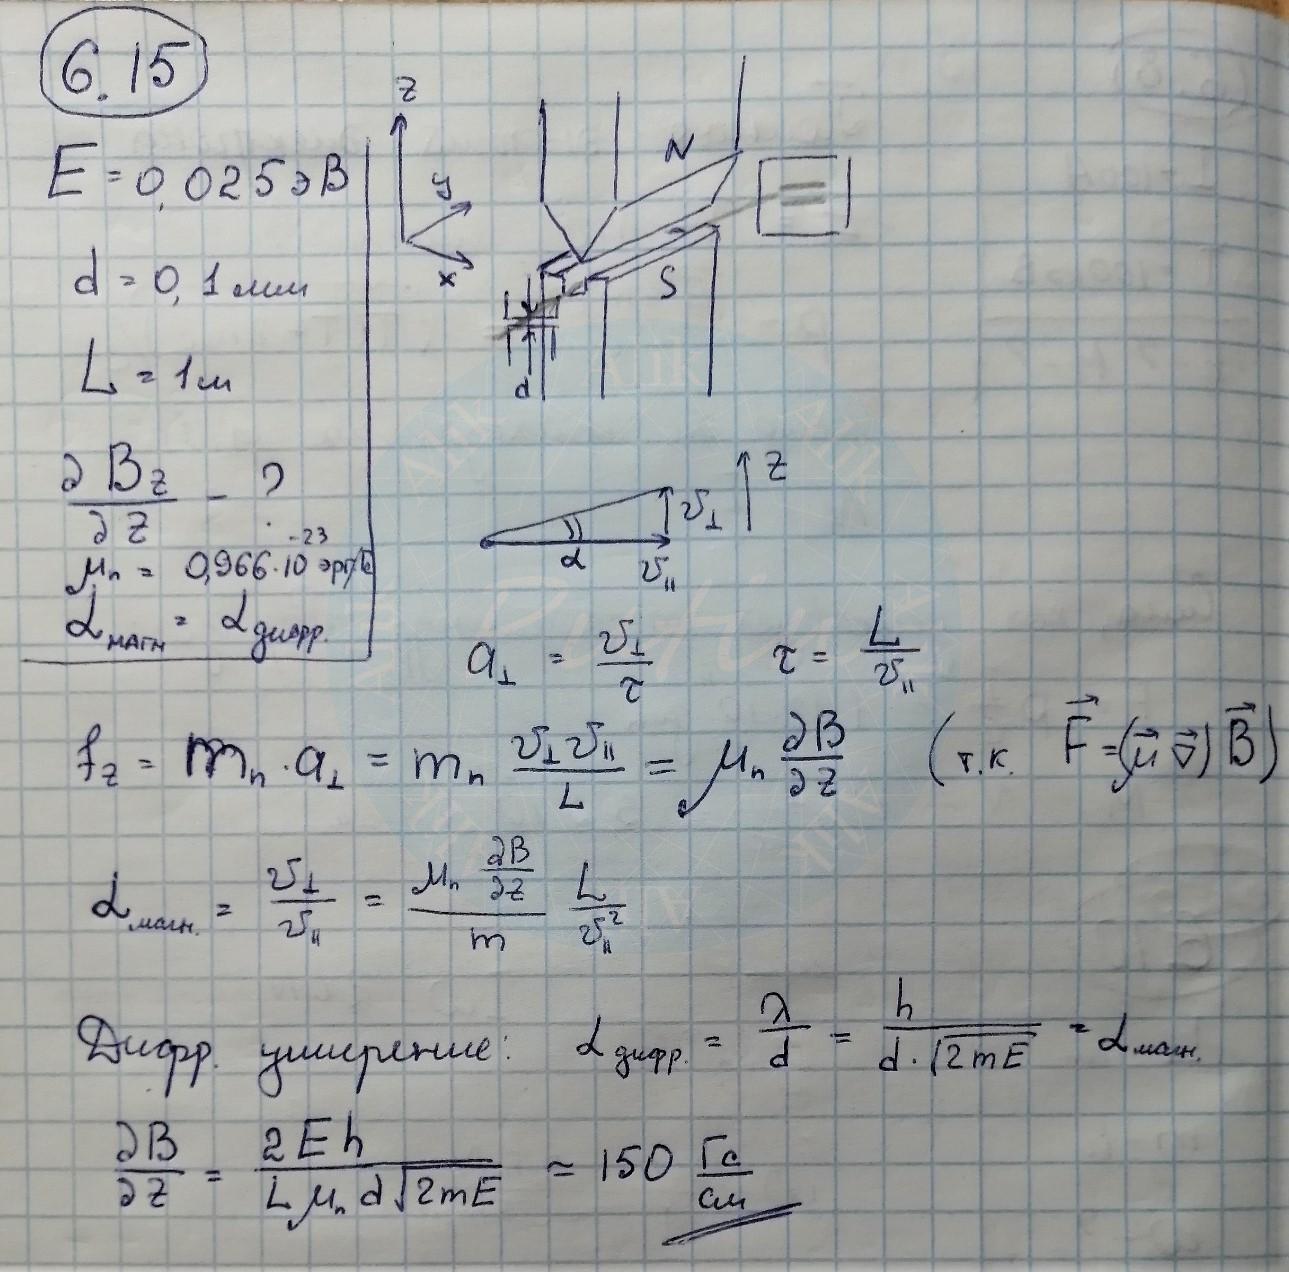 6.15
E = 0,025 эВ
d = 0,1 мм
L = 1 м
∂B_z/∂z - ?
μ_n = 0,966·10^-23 эрг/Гс
α_магн = α_дифр.
z
y
x
N
S
d
z
v_⊥
α
v_||
a_⊥ = v_⊥/τ    τ = L/v_||
f_z = m_n · a_⊥ = m_n v_⊥ v_||/L = μ_n ∂B/∂z (т.к. F⃗ = (μ⃗ ∇⃗) B⃗)
α_магн. = v_⊥/v_|| = μ_n ∂B/∂z / m · L/v_||^2
Дифр. уширение: α_дифр. = λ/d = h/(d·√(2mE)) = α_магн.
∂B/∂z = 2Eh/(L μ_n d √(2mE)) ≈ 150 Гс/см
Alik
Alik
Alik